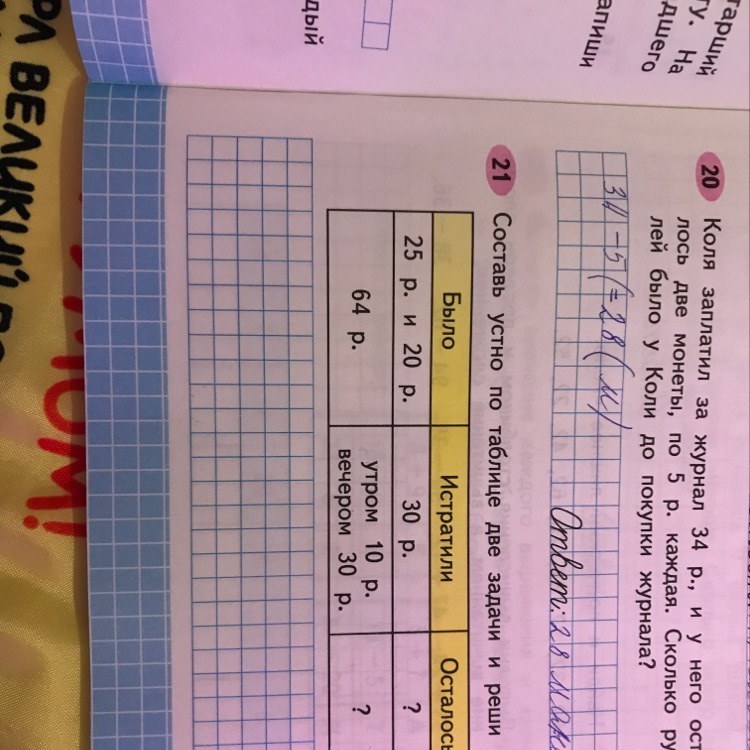 тарший
ту. На
дшего
апиши
дый
20 Коля заплатил за журнал 34 р., и у него ост
лось две монеты, по 5 р. каждая. Сколько ру
лей было у Коли до покупки журнала?
Ответ: 28
21 Составь устно по таблице две задачи и реши
Было Истратили Осталось
25 р. и 20 р. 30 р. ?
64 р. утром 10 р. ?
вечером 30 р.
РА ВЕЛИКИЙ